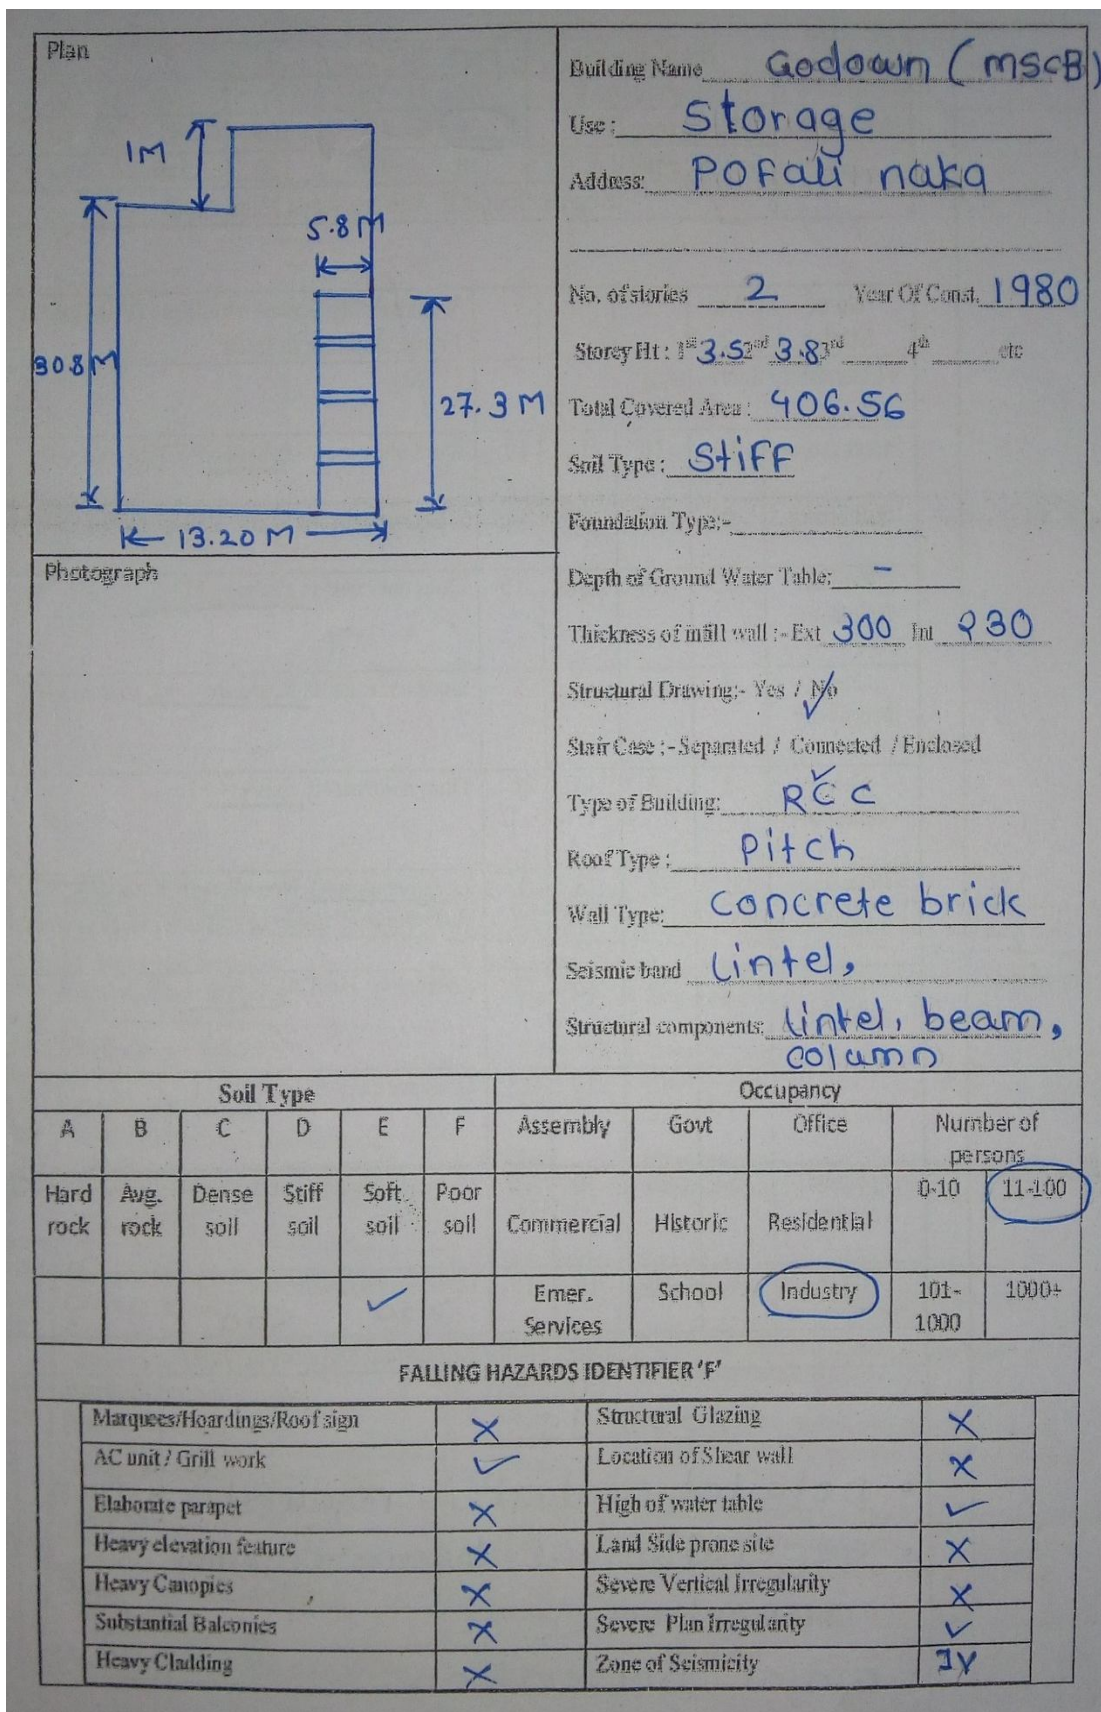 Plan
1M
5.8M
30.8M
27.3 M
13.20 M
Photograph
Building Name Godown (MSCB)
Use : Storage
Address: Pofali naka
No. of stories 2 Year Of Const. 1980
Storey Ht : 1st 3.5 2nd 3.8 3rd 4th etc
Total Covered Area : 406.56
Soil Type : Stiff
Foundation Type:-
Depth of Ground Water Table: -
Thickness of infill wall :- Ext 300 Int 230
Structural Drawing:- Yes / No
Stair Case :- Separated / Connected / Enclosed
Type of Building: RCC
Roof Type : Pitch
Wall Type: Concrete brick
Seismic band Lintel,
Structural components: Lintel, beam,
column
Soil Type Occupancy
A B C D E F Assembly Govt Office Number of
persons
Hard Avg. Dense Stiff Soft Poor Commercial Historic Residential 0-10 11-100
rock rock soil soil soil soil
✓ Emer. School Industry 101- 1000+
Services 1000
FALLING HAZARDS IDENTIFIER 'F'
Marquees/Hoardings/Roof sign X Structural Glazing X
AC unit / Grill work ✓ Location of Shear wall X
Elaborate parapet X High of water table ✓
Heavy elevation feature X Land Side prone site X
Heavy Canopies X Severe Vertical Irregularity X
Substantial Balconies X Severe Plan Irregularity ✓
Heavy Cladding X Zone of Seismicity IV